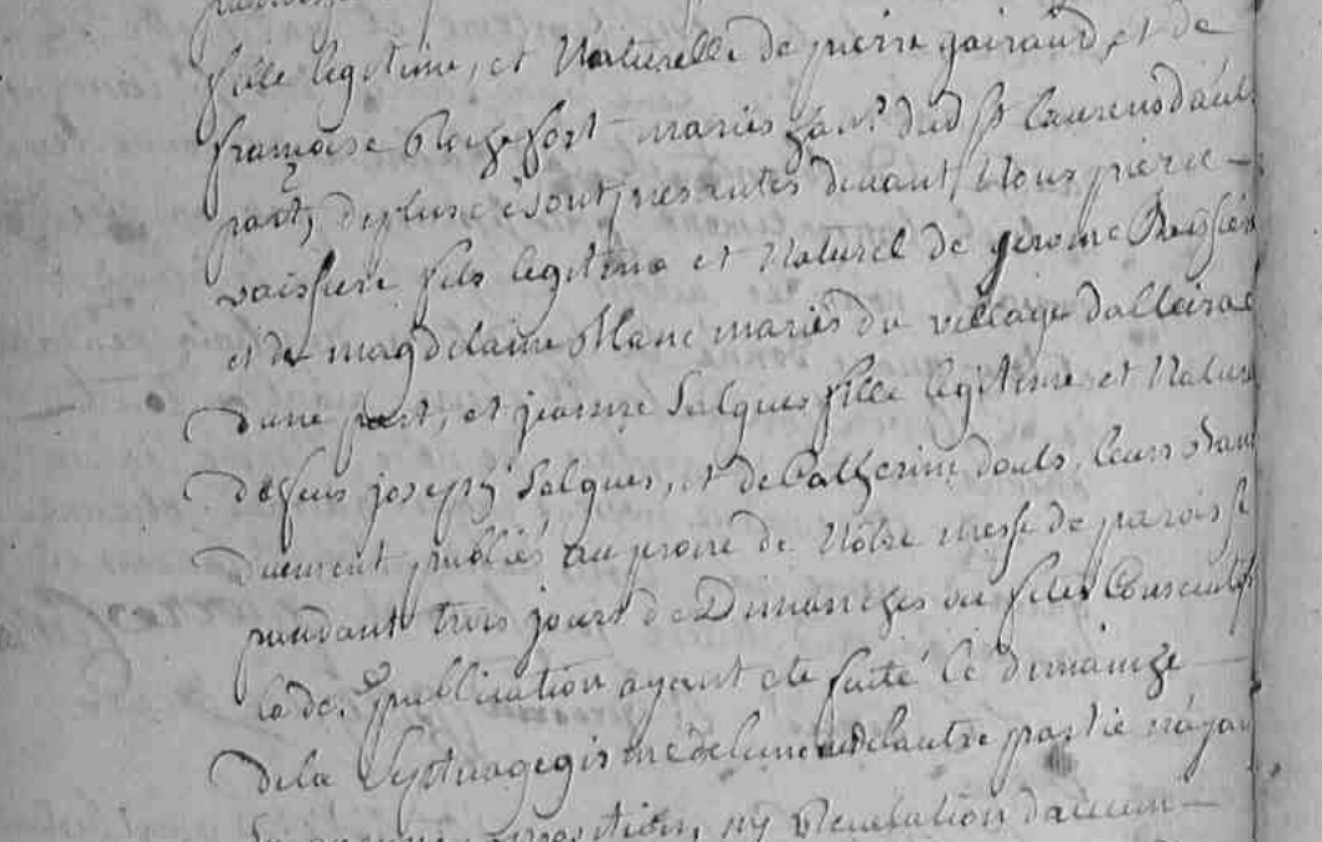 fille legitime, et Naturelle de pierre gairaud, et de
françoise Rochefort mariés dud St Laurens dau
part, deplus se sont presantés devant Nous pierre
vaissiere fils legitime et Naturel de jerome
et de magdelaine Blanc mariés du village dalleirac
dune part, et jeanne Salques fille legitime et Natur
de feus joseph Salques, et de Catherine douls, leurs bans
duement publiés au prone de Nôtre messe de paroisse
pandant trois jours de Dimanches ou fetes Consecutifs
lade. publication ayant eté faite le dimanche
dela Septuagegisme de lune et delautre partie n'ayan
opposition, ny Revelation daucun